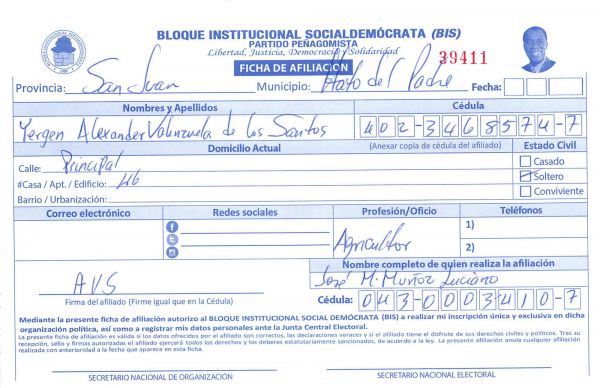 BLOQUE INSTITUCIONAL SOCIALDEMÓCRATA (BIS)
PARTIDO PEÑAGOMISTA
Libertad, Justicia, Democracia y Solidaridad
39411
FICHA DE AFILIACIÓN
Provincia: San Juan Municipio: Hato del Padre Fecha:
Nombres y Apellidos Cédula
Yergen Alexander Valenzuela de los Santos 402-3468574-7
Domicilio Actual (Anexar copia de cédula del afiliado) Estado Civil
Calle: Principal Casado
#Casa / Apt. / Edificio: 46 Soltero
Barrio / Urbanización: Conviviente
Correo electrónico Redes sociales Profesión/Oficio Teléfonos
1)
Agricultor 2)
Nombre completo de quien realiza la afiliación
AVS José M. Muñoz Luciano
Firma del afiliado (Firme igual que en la Cédula) Cédula: 043-0003410-7
Mediante la presente ficha de afiliación autorizo al BLOQUE INSTITUCIONAL SOCIAL DEMÓCRATA (BIS) a realizar mi inscripción única y exclusiva en dicha
organización política, así como a registrar mis datos personales ante la Junta Central Electoral.
La presente ficha de afiliación es válida si los datos ofrecidos por el afiliado son correctos, las declaraciones veraces y si el afiliado tiene el disfrute de sus derechos civiles y políticos. Tras su
recepción, sello y firmas autorizadas el afiliado ejercerá todo los derechos y deberes estatutariamente sancionados, de acuerdo a la ley. La presente afiliación anula cualquier afiliación
realizada con anterioridad a la fecha que aparece en esta ficha.
SECRETARIO NACIONAL DE ORGANIZACIÓN SECRETARIO NACIONAL ELECTORAL